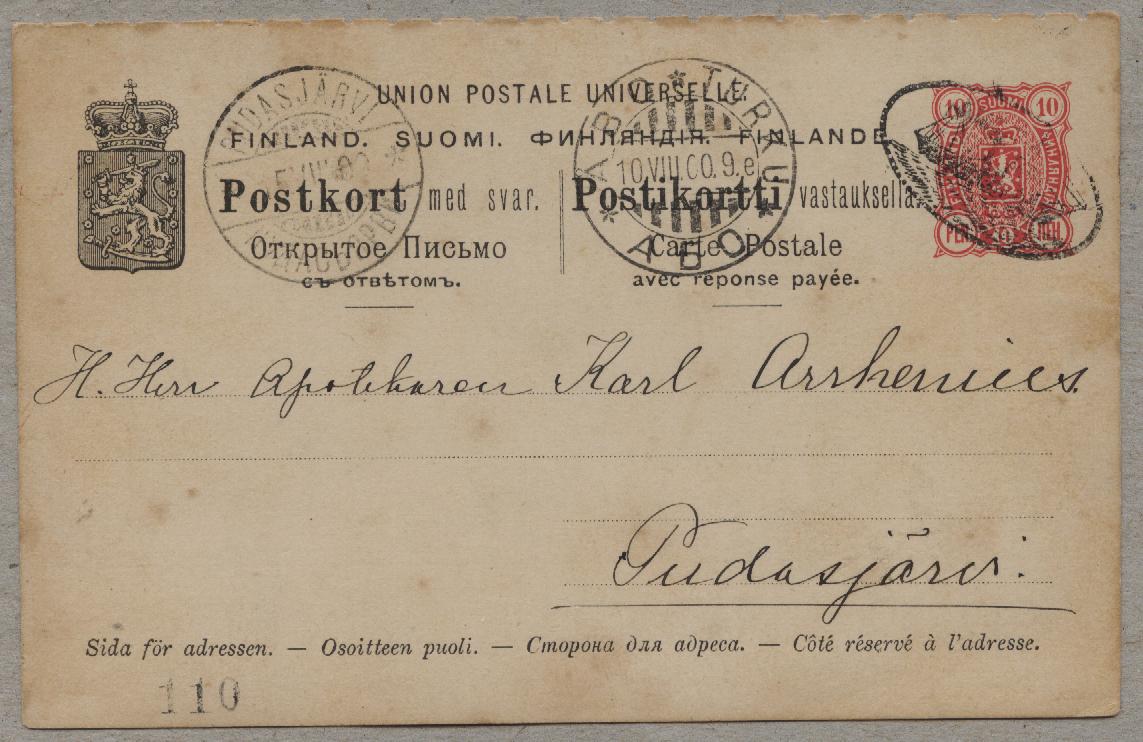 UNION POSTALE UNIVERSELLE.
FINLAND. SUOMI. ФИНЛЯНДІЯ. FINLANDE
Postkort med svar.
Открытое Письмо
съ отвѣтомъ.
Postikortti vastauksella.
Carte Postale
avec réponse payée.
PUDASJÄRVI
ÅBO * TURKU *
10.VIII.00.9.e
АБО
10 SUOMI 10
PEN. ПЕН.
H. Herr Apothekaren Karl Arrhenius
Pudasjärvi.
Sida för adressen. — Osoitteen puoli. — Сторона для адреса. — Côté réservé à l'adresse.
110